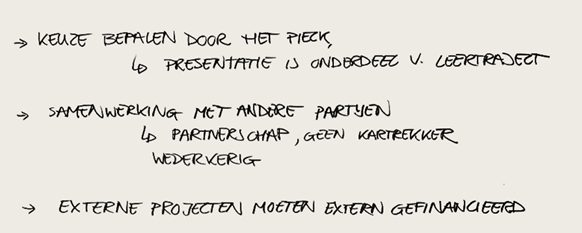 → KEUZE BEPALEN DOOR HET PIECK,
↳ PRESENTATIE IS ONDERDEEL V. LEERTRAJECT
→ SAMENWERKING MET ANDERE PARTIJEN
↳ PARTNERSCHAP, GEEN KARTREKKER
WEDERKERIG
→ EXTERNE PROJECTEN MOETEN EXTERN GEFINANCIEERD